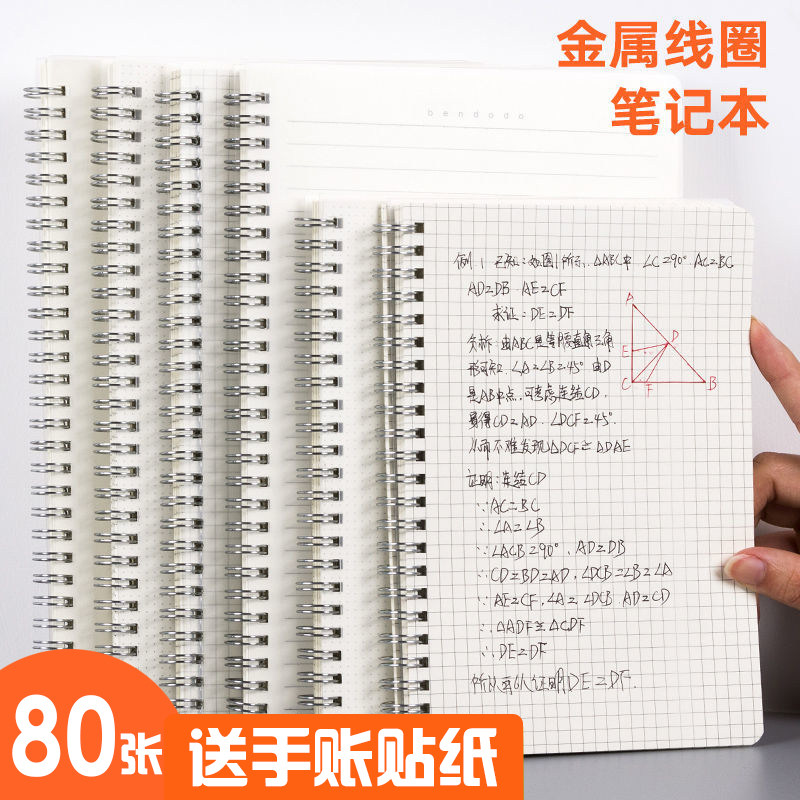 金属线圈
笔记本
bendodo
例1 已知:如图1所示,△ABC中 ∠C=90° AC=BC
AD=DB AE=CF
求证:DE=DF
A
D
E
C F B
分析:由ABC是等腰直角三角
形可知,∠A=∠B=45° 由D
是AB中点,可考虑连结CD,
易得CD=AD,∠DCF=45°.
从而不难发现△DCF≌△DAE
证明:连结CD
∵AC=BC
∴∠A=∠B
∵∠ACB=90°,AD=DB
∴CD=BD=AD,∠DCB=∠B=∠A
∵AE=CF,∠A=∠DCB AD=CD
∴△ADF≌△CDF
∴DE=DF
所以可以证明DE=DF.
80张
送手账贴纸